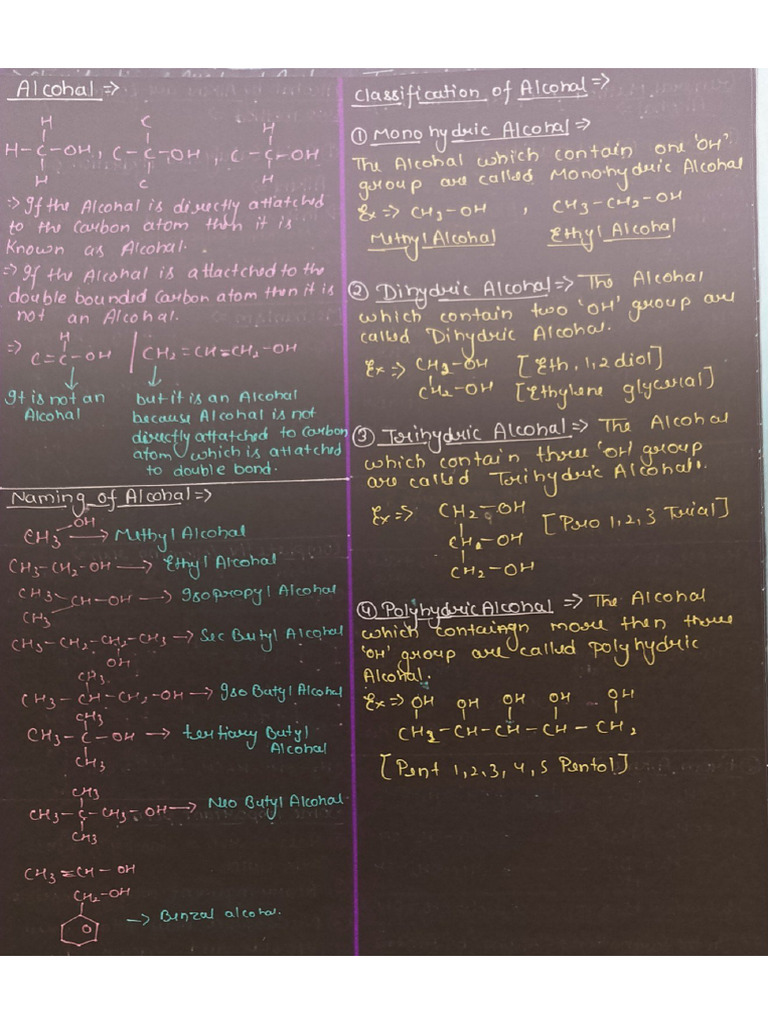 Alcohal =>
H C H
H-C-OH, C-C-OH, C-C-OH
H C H
=> If the Alcohal is directly attatched
to the Carbon atom then it is
Known as Alcohal.
=> If the Alcohal is attactched to the
double bounded Carbon atom then it is
not an Alcohal.
H
=> C=C-OH | CH2=CH=CH2-OH
It is not an
Alcohal
but it is an Alcohal
because Alcohal is not
directly attatched to Carbon
atom which is attatched
to double bond.
Naming of Alcohal =>
OH
CH3 → Methyl Alcohal
CH3-CH2-OH → Ethyl Alcohal
CH3
CH-OH → Isopropyl Alcohal
CH3
CH3-CH2-CH2-CH3 → Sec Butyl Alcohal
OH
CH3
CH3-CH-CH2-OH → Iso Butyl Alcohal
CH3
CH3-C-OH → tertiary Butyl
Alcohal
CH3
CH3
CH3-C-CH2-OH → Neo Butyl Alcohal
CH3
CH3=CH-OH
CH2-OH
→ Benzal alcohal.
Classification of Alcohal =>
① Mono hydric Alcohal =>
The Alcohal which contain one 'OH'
group are called Monohydric Alcohal
Ex => CH3-OH , CH3-CH2-OH
Methyl Alcohal Ethyl Alcohal
② Dihydric Alcohal => The Alcohal
which contain two 'OH' group are
called Dihydric Alcohal.
Ex => CH2-OH [Eth, 1,2 diol]
CH2-OH [Ethylene glycerial]
③ Trihydric Alcohal => The Alcohal
which contain three 'OH' group
are called Trihydric Alcohal.
Ex => CH2-OH
CH2-OH [Pro 1,2,3 Trial]
CH2-OH
④ Polyhydric Alcohal => The Alcohal
which containgn more then three
'OH' group are called polyhydric
Alcohal.
Ex => OH OH OH OH OH
CH2-CH-CH-CH-CH2
[Pent 1,2,3,4,5 Pentol]